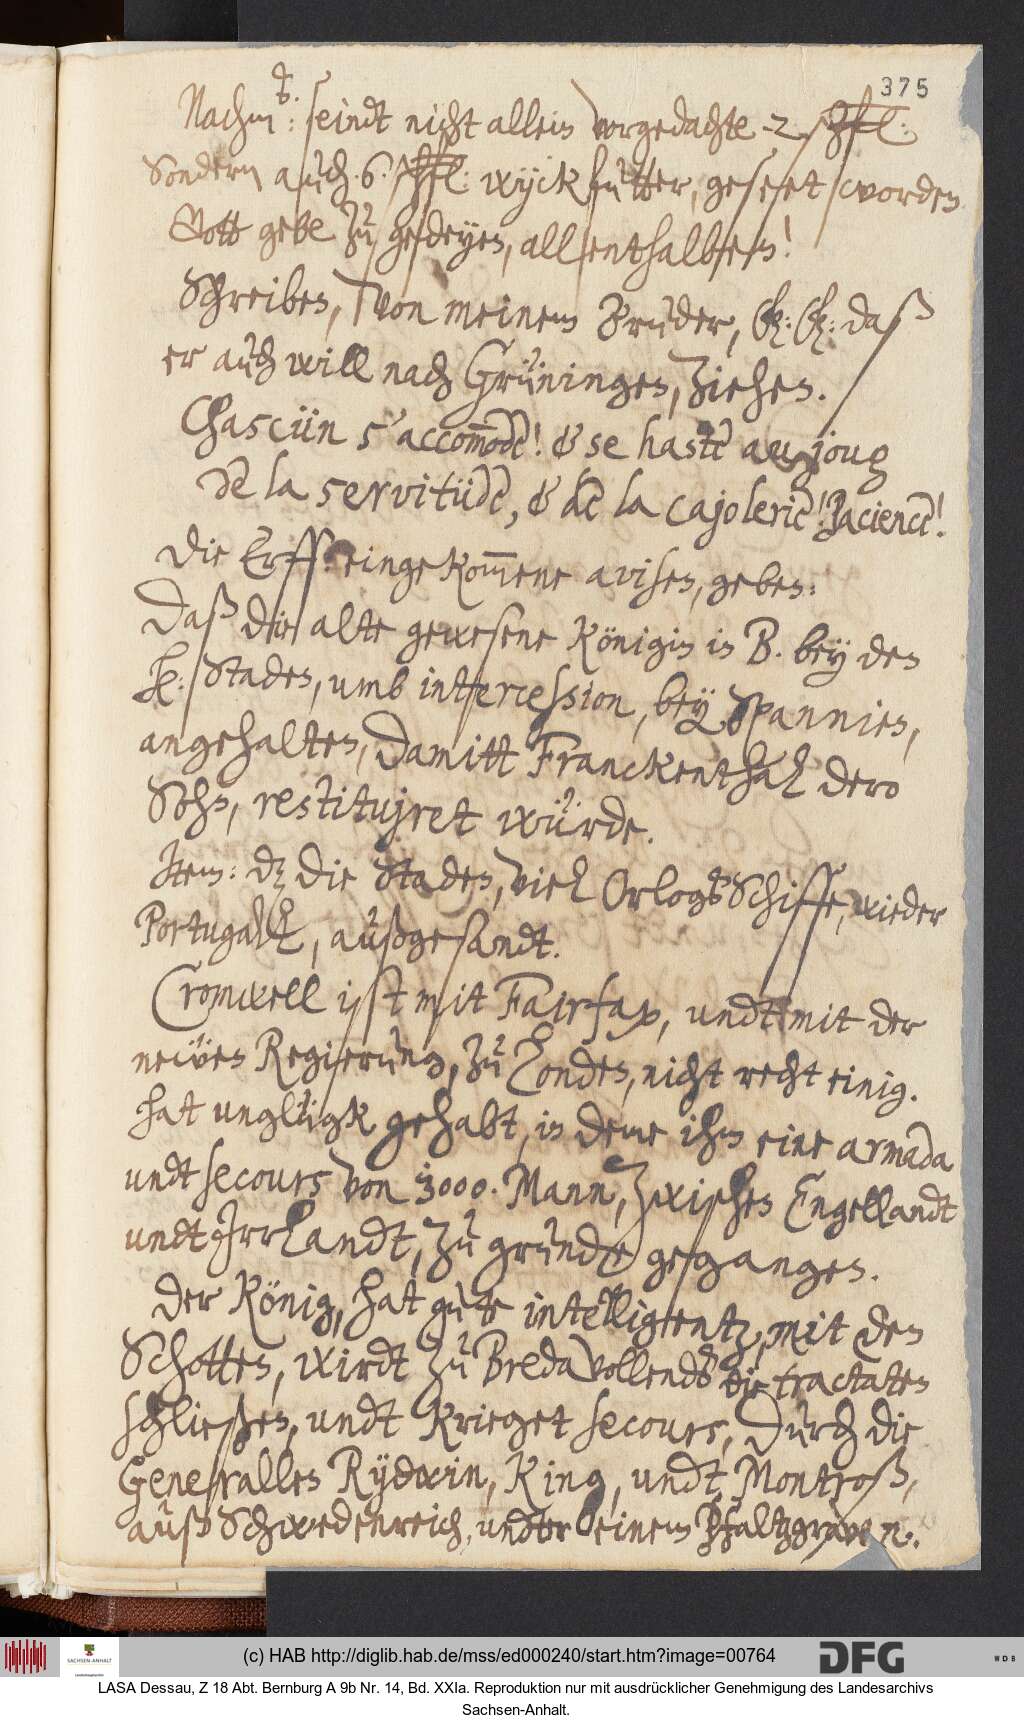 375
Nachmts: seindt nicht allein vorgedachte 2 schfl:
Sondern auch 6. schfl: wyckfutter, geseeet worden
Gott gebe zu gesdeyen, allenthalben!
Schreiben, von meinem Bruder, daß
er auch will nach Grüningen, ziehen.
Chasciün s'accommode! & se haste au joug
de la servitüde, & de la cajolerie! Pacience!
Die Erff: eingekommene avisen, geben:
Daß die alte gewesene Königin in B. bey den
H: Staden, umb intercession, bey Spannien,
angehalten, damitt Franckenthal dero
Sohn, restituiret würde.
Item: dz die Staden, viel OrlogsSchiffe, wieder
Portugall, außgesandt.
Cromwell ist mit Fairfax, undt mit der
neuen Regierung, zu Londen, nicht recht einig.
hat unglügk gehabt, in deme ihm eine armada
undt secours von 3000. Mann, zwischen Engellandt
undt Irrlandt, zu grunde gegangen.
Der König, hat gute intelligentz, mit den
Schotten, wirdt zu Breda vollends die tractaten
schließen, undt krieget secours, durch die
Generalles Rÿdwin, King, undt Montroß,
auß Schwedenreich, undter einem Pfaltzgraven.
(c) HAB http://diglib.hab.de/mss/ed000240/start.htm?image=00764
SACHSEN-ANHALT
DFG
WDB
LASA Dessau, Z 18 Abt. Bernburg A 9b Nr. 14, Bd. XXIa. Reproduktion nur mit ausdrücklicher Genehmigung des Landesarchivs
Sachsen-Anhalt.